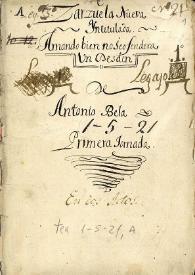 Zarzuela Nueva
Intitulada,
Amando bien no se ofende a
Un Desden
Legajo
De
Antonio Bela
1-5-21
Primera Jornada
tea 1-5-21, A